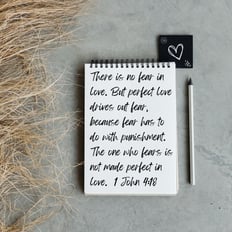 There is no fear in
love. But perfect love
drives out fear,
because fear has to
do with punishment.
The one who fears is
not made perfect in
love. 1 John 4:18